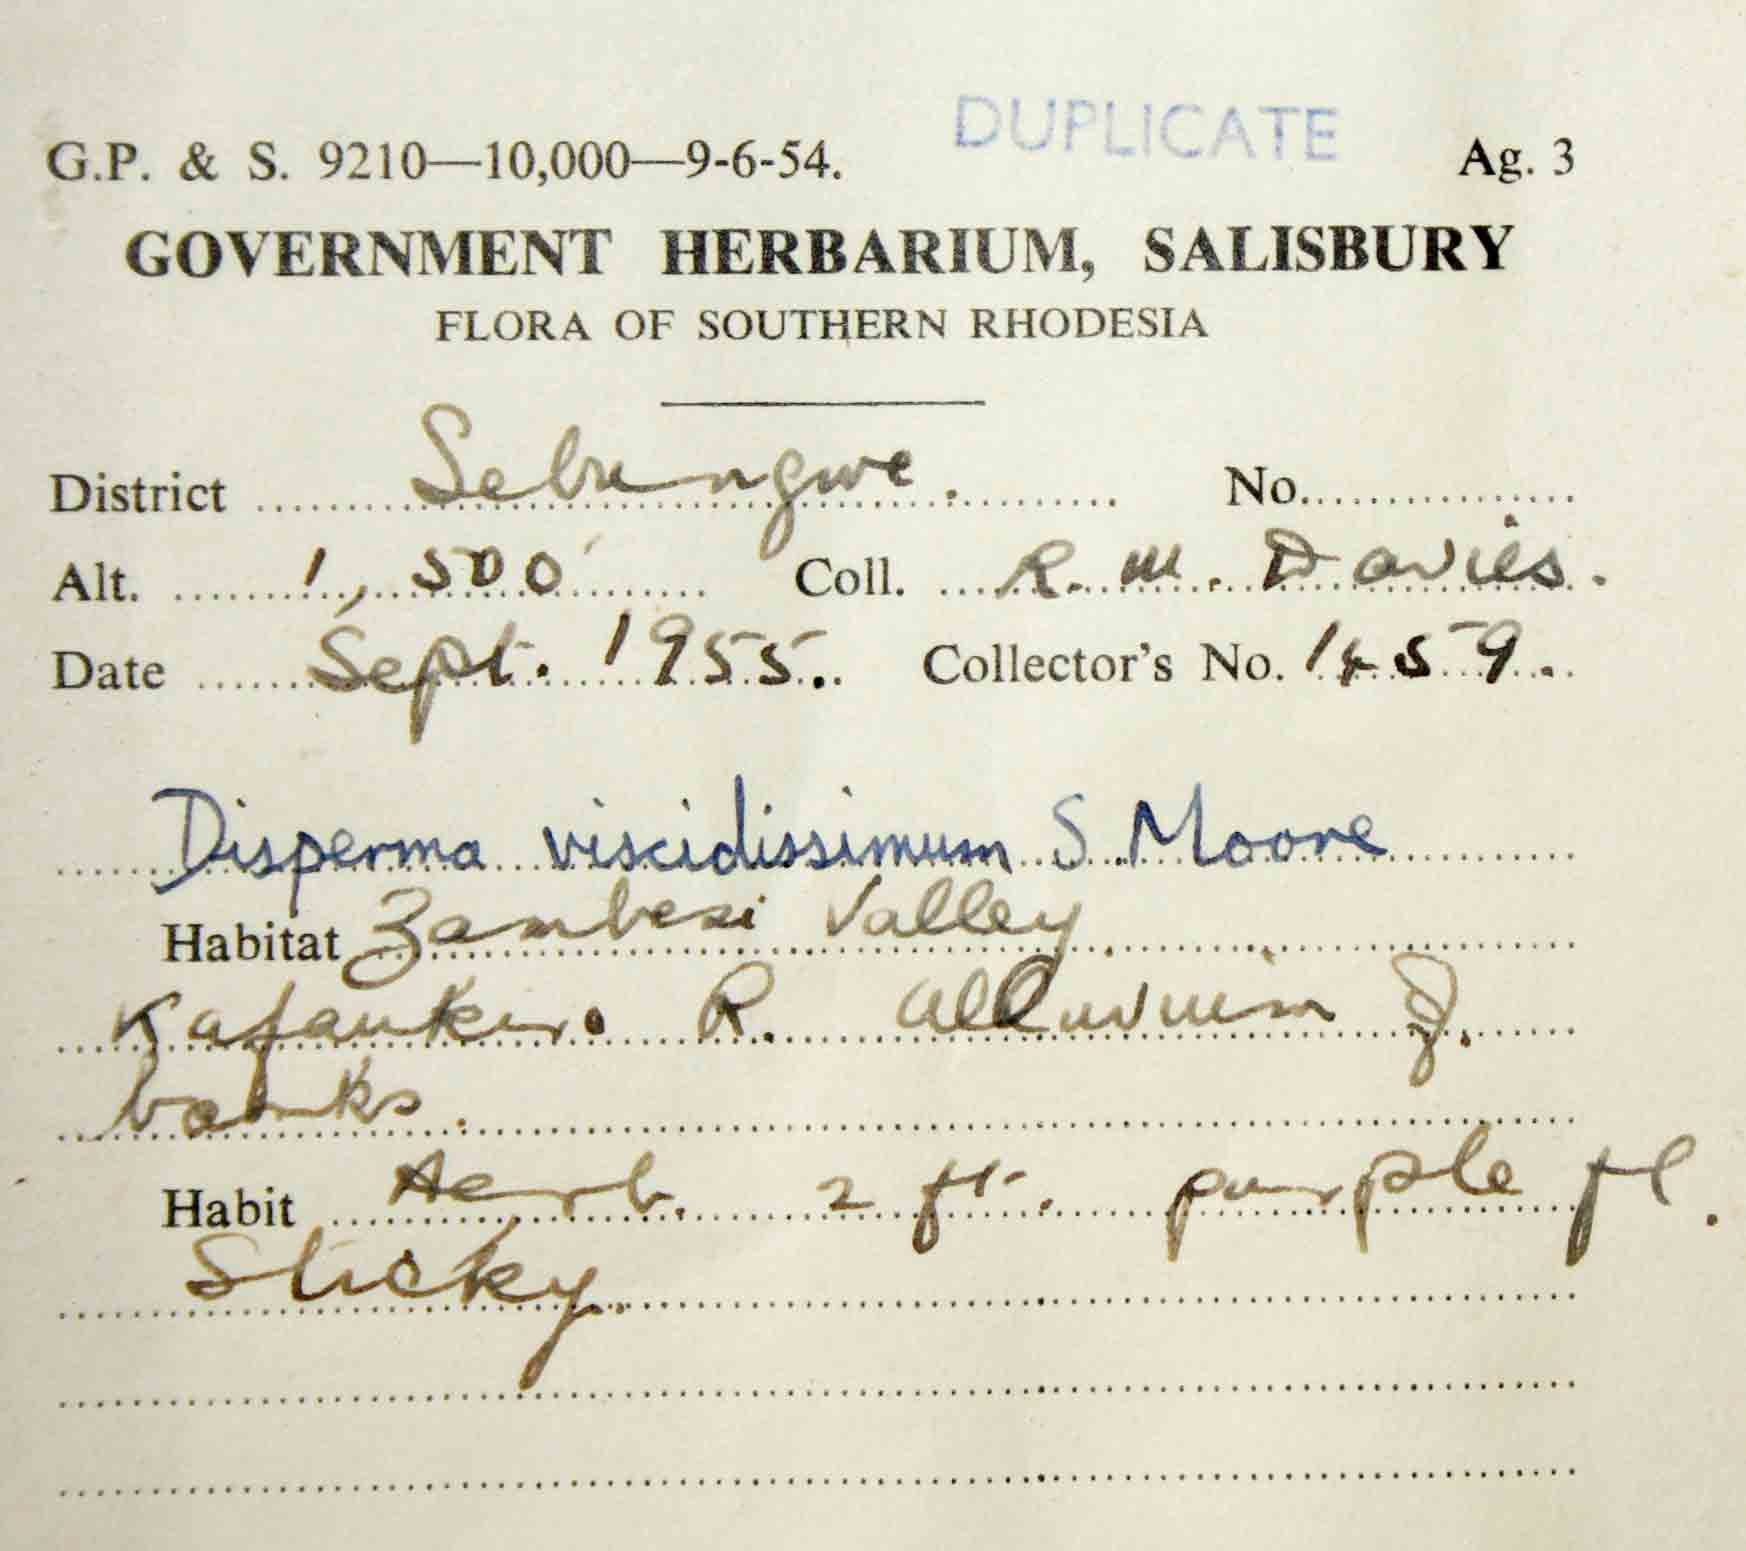 DUPLICATE
G.P. & S. 9210—10,000—9-6-54. Ag. 3
GOVERNMENT HERBARIUM, SALISBURY
FLORA OF SOUTHERN RHODESIA
District Sebungwe. No.
Alt. 1,500' Coll. R. M. Davies.
Date Sept. 1955. Collector's No. 1459.
Disperma viscidissimum S. Moore
Habitat Zambesi Valley.
R. alluvium of.
banks.
Habit Herb. 2 ft. purple fl.
Sticky.